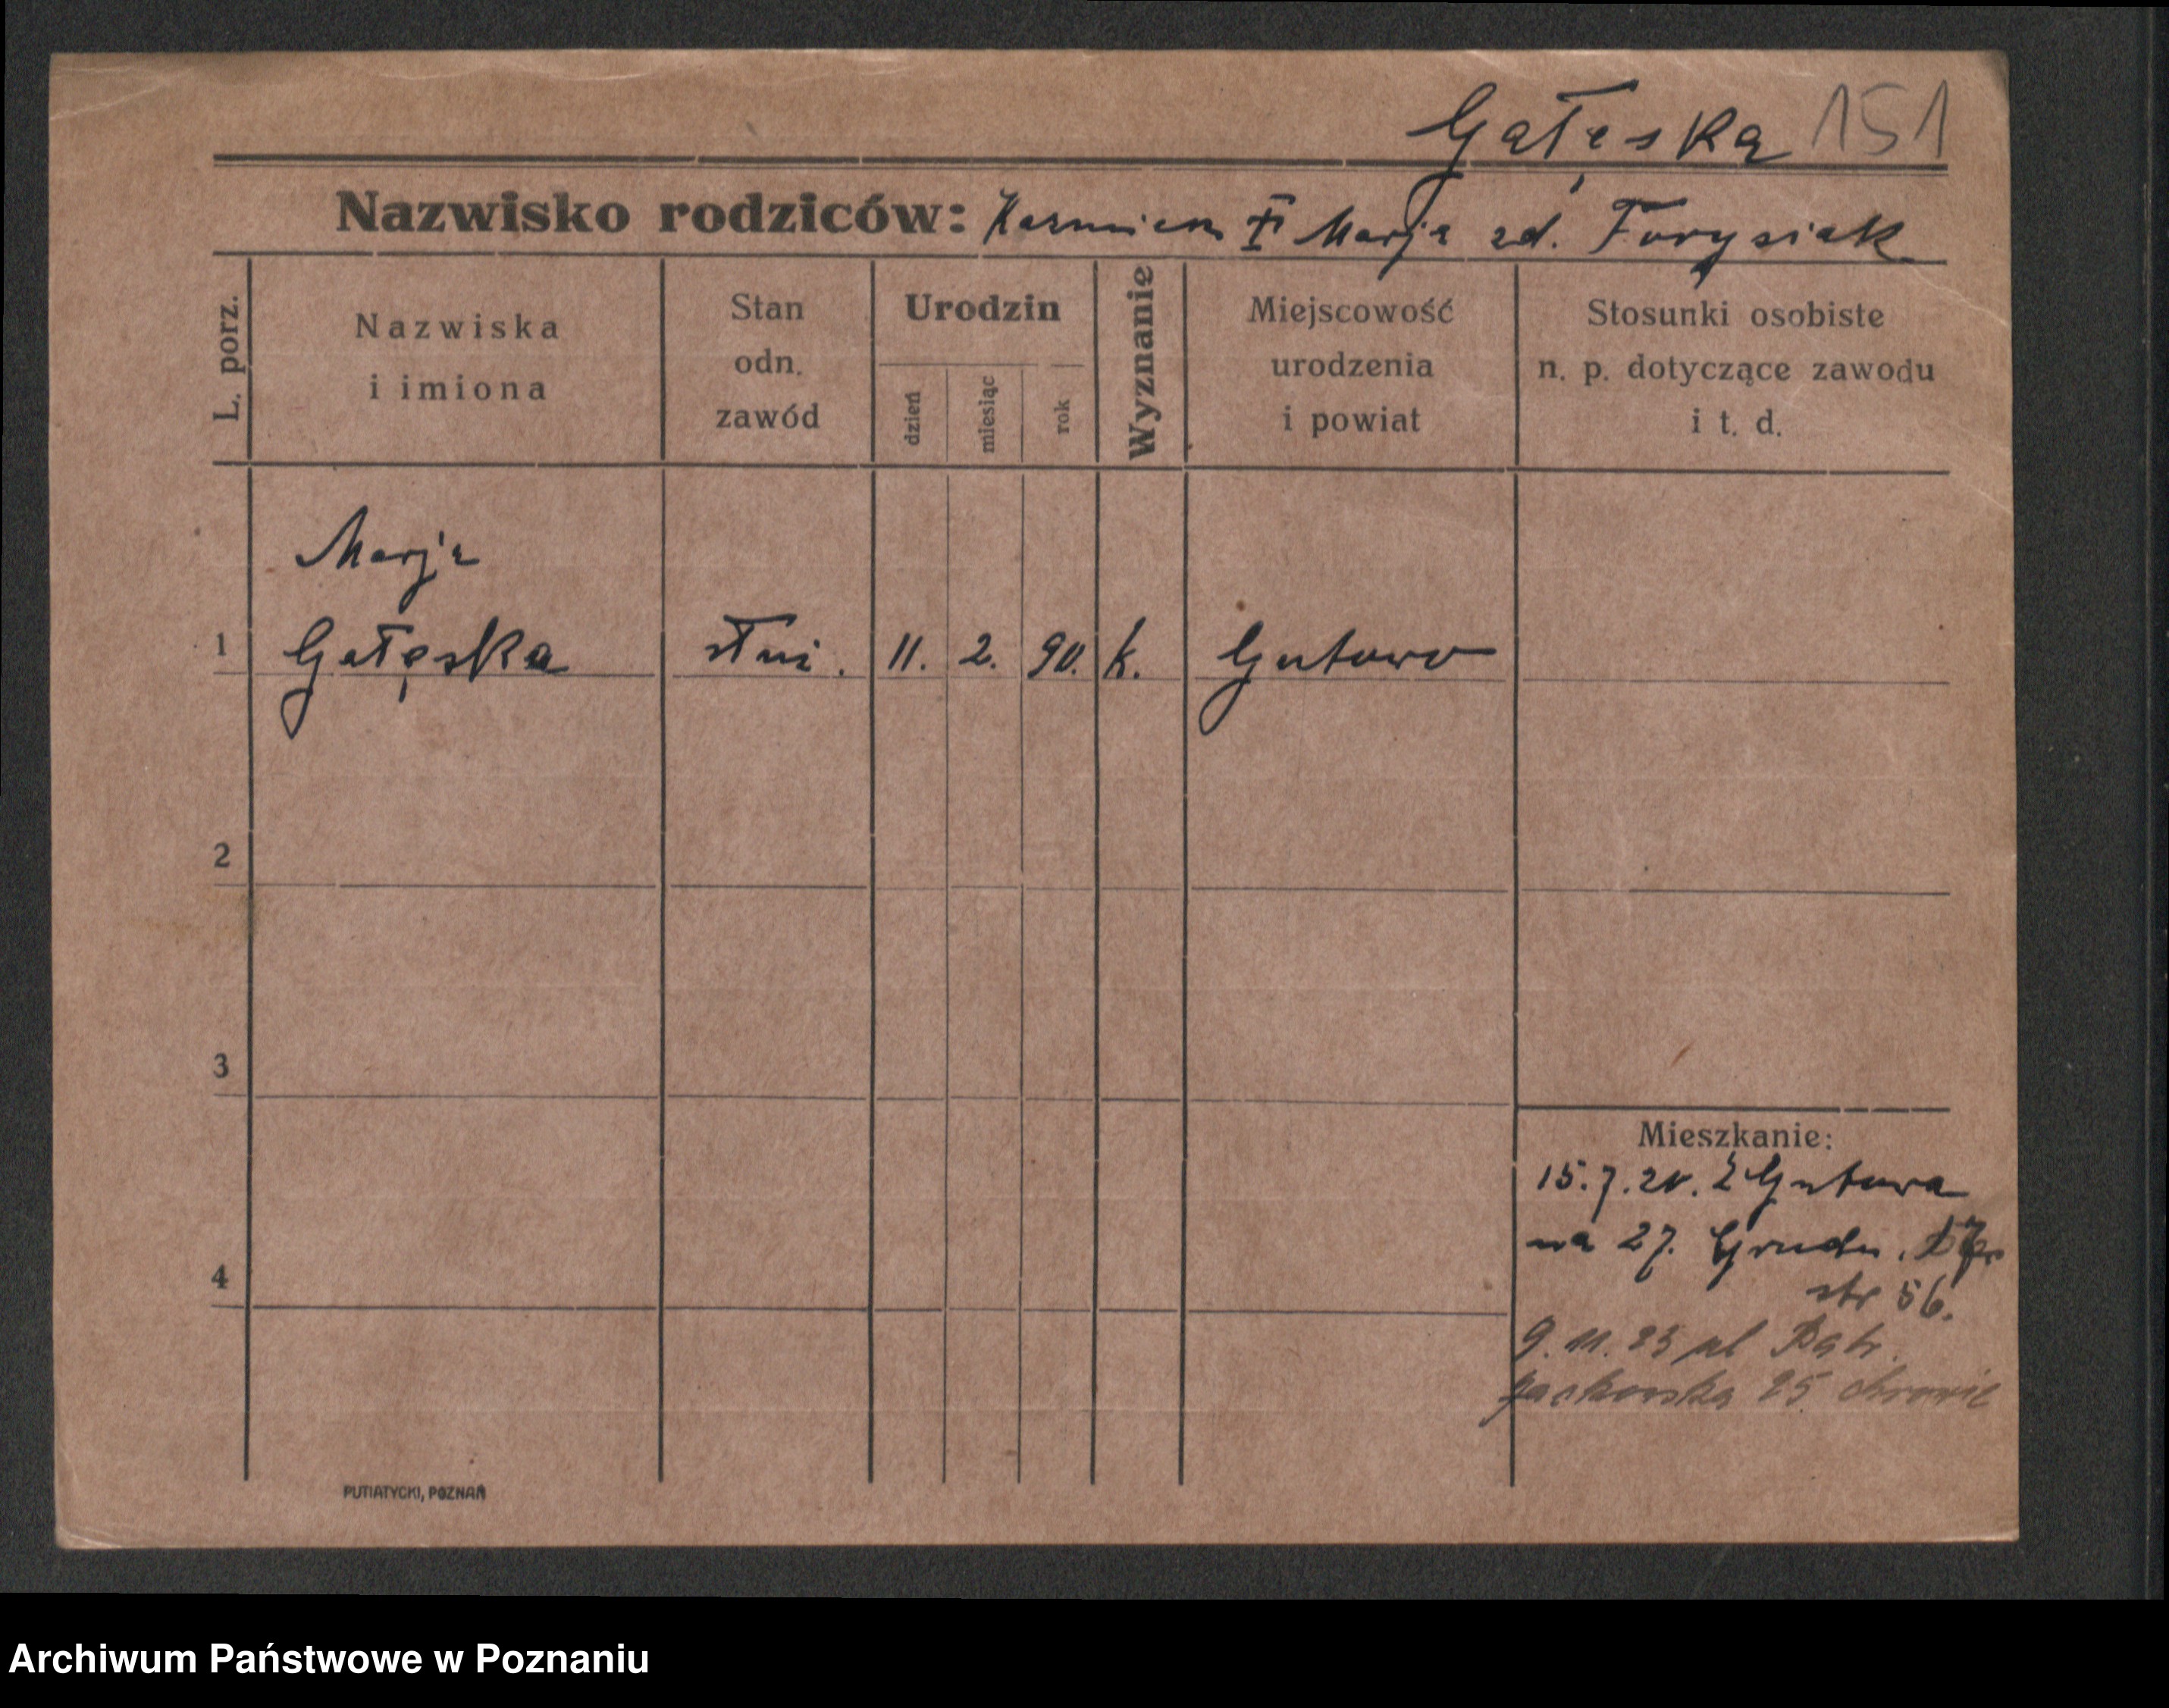 Gałęska 151
Nazwisko rodziców: Marja zd. Furysiak
L. porz.
Nazwiska
i imiona
Stan
odn.
zawód
Urodzin
dzień
miesiąc
rok
Wyznanie
Miejscowość
urodzenia
i powiat
Stosunki osobiste
n. p. dotyczące zawodu
i t. d.
Marja
1 Gałęska służ. 11. 2. 90. k. Gutowo
2
3
4
Mieszkanie:
15.7.20. Z Gutowa
na 27. Grudn.
str 56.
9. 11. 23 ul
25
PUTIATYCKI, POZNAŃ
Archiwum Państwowe w Poznaniu